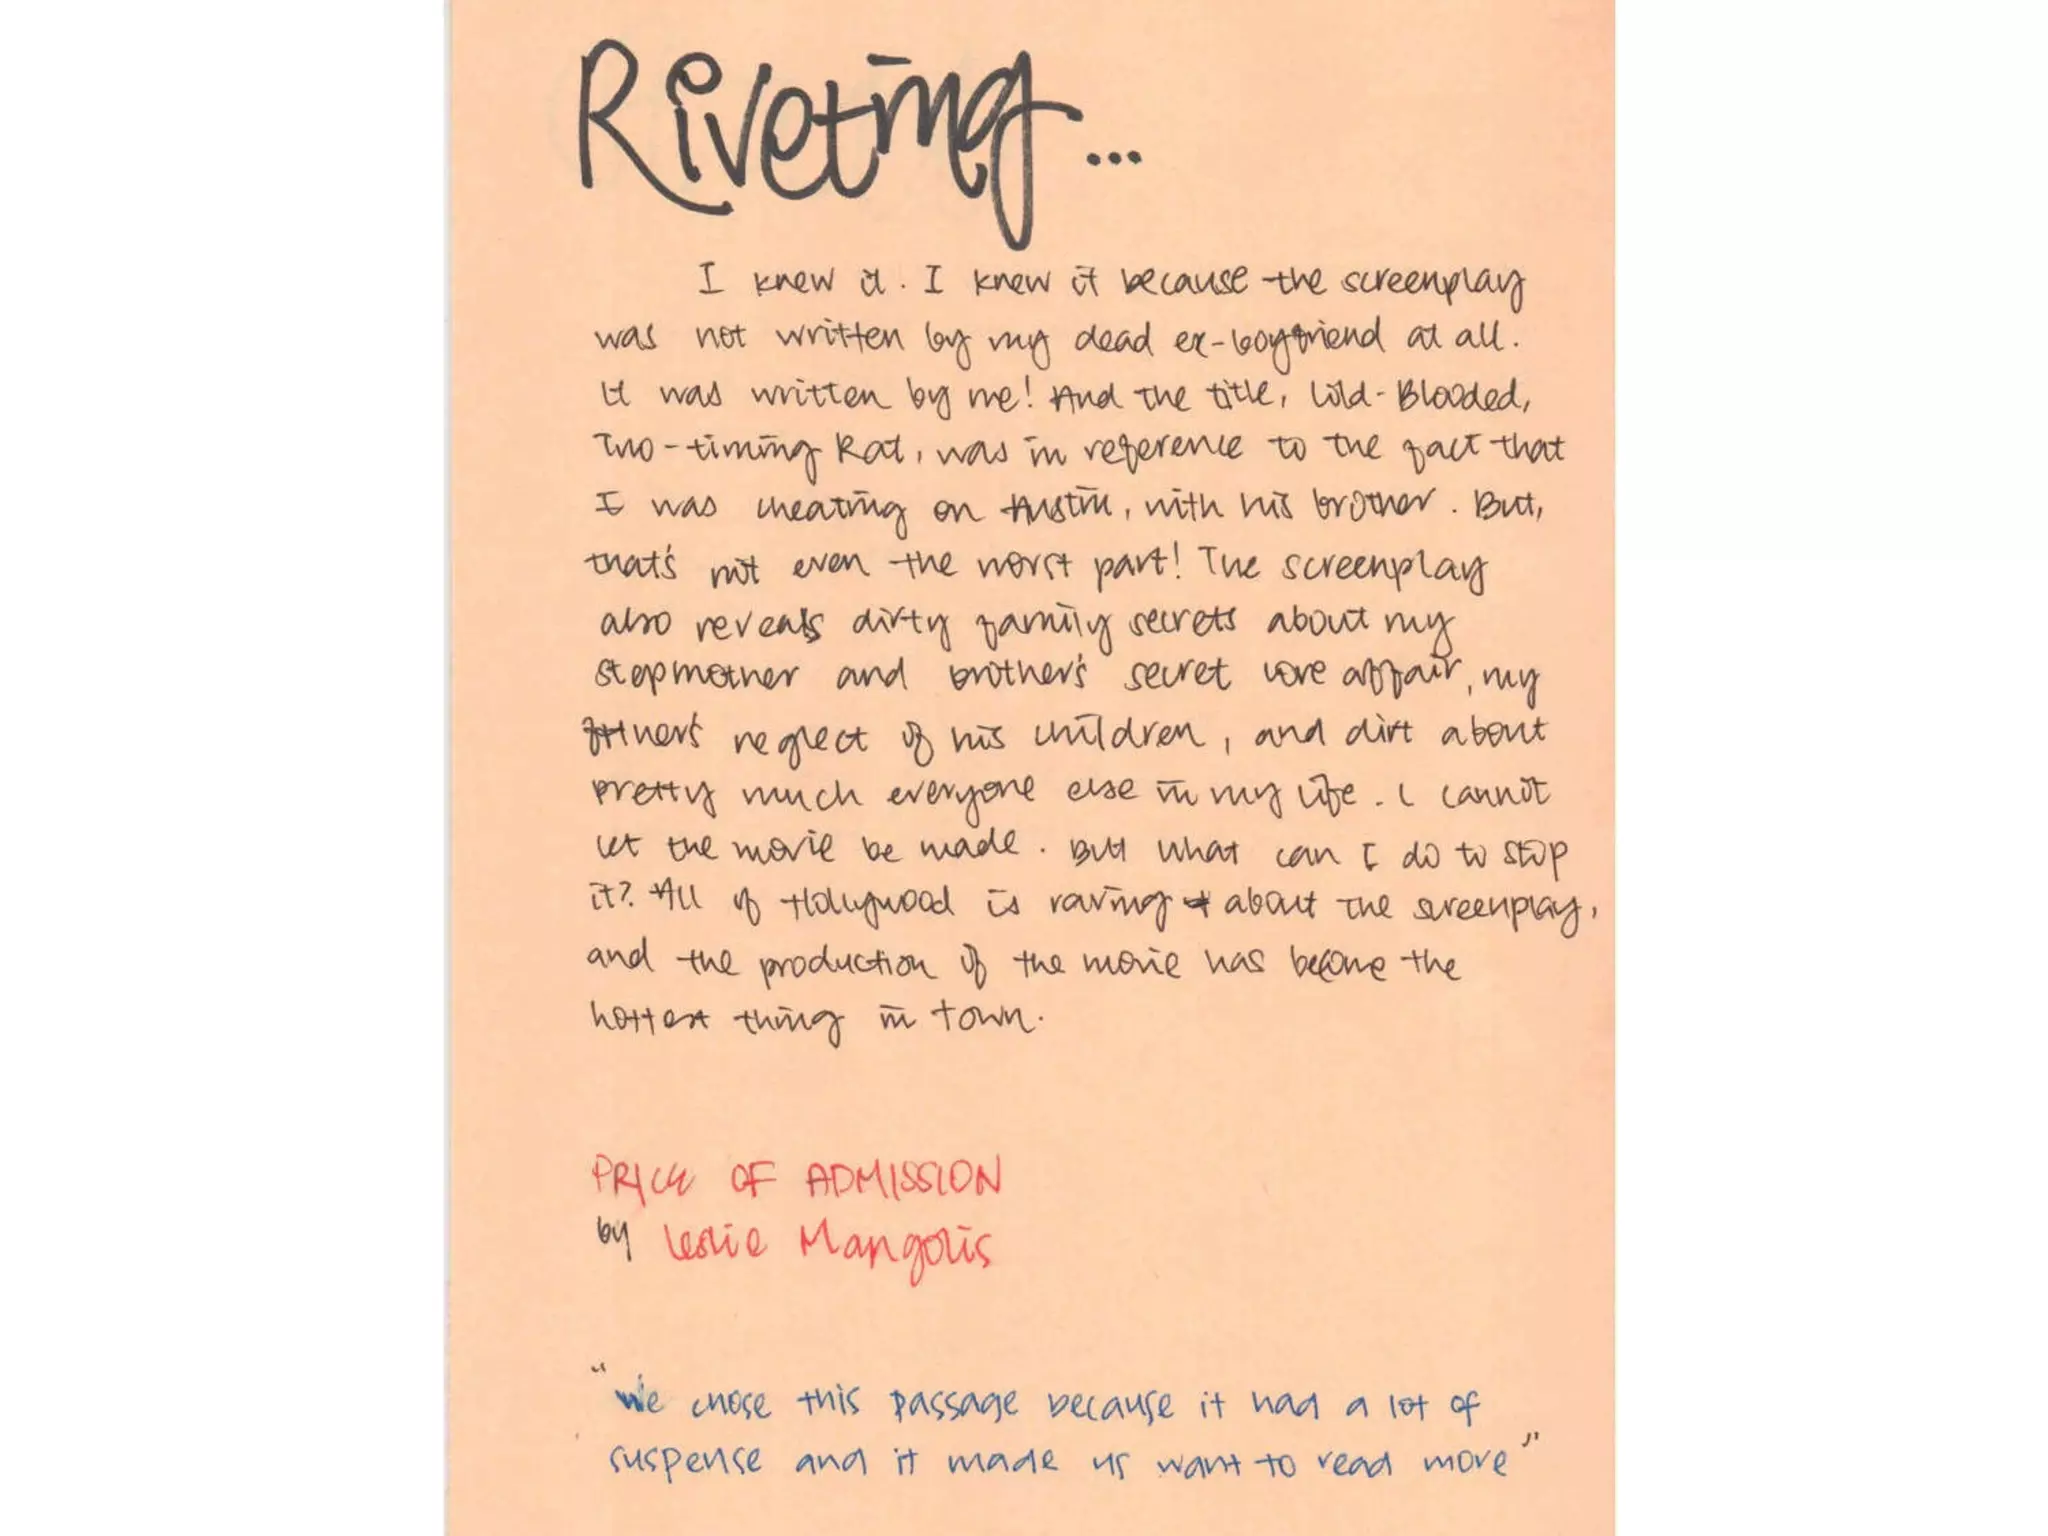 Riveting...
I knew it. I knew it because the screenplay
was not written by my dead ex-boyfriend at all.
It was written by me! And the title, Cold-Blooded,
Two-timing Rat, was in reference to the fact that
I was cheating on Austin, with his brother. But,
that's not even the worst part! The screenplay
also reveals dirty family secrets about my
stepmother and brother's secret love affair, my
father's neglect of his children, and dirt about
pretty much everyone else in my life. I cannot
let the movie be made. But what can I do to stop
it? All of Hollywood is raving about the screenplay,
and the production of the movie has become the
hottest thing in town.
PRICE OF ADMISSION
by Leslie Mangolis
"We chose this passage because it had a lot of
suspense and it made us want to read more"